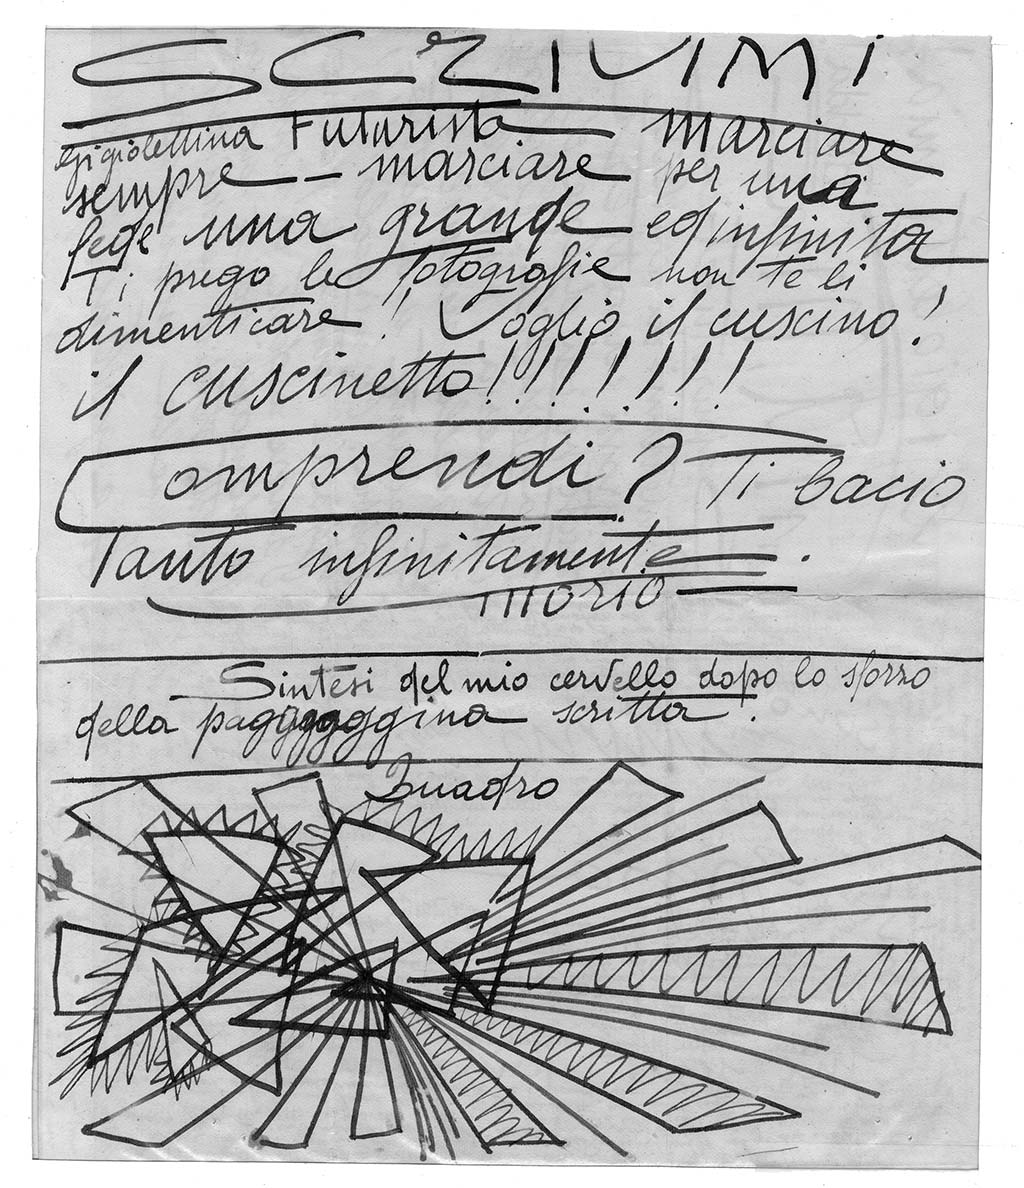 SCRIVIMI
Gigiolettina Futurista marciare
sempre – marciare per una
fede una grande ed infinita
Ti prego le fotografie non te li
dimenticare! Voglio il cuscino!
il cuscinetto!!!!!!!
Comprendi? Ti bacio
Tanto infinitamente.
Sintesi del mio cervello dopo lo sforzo
della pagggggggina scritta.
Quadro